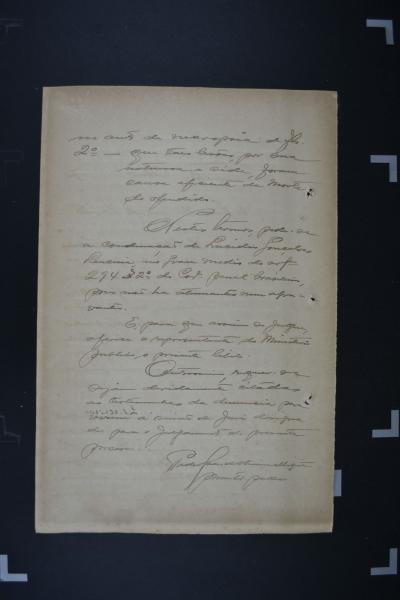 no auto de necropsia de fls.
2º — que taes lesões, por sua
natureza e séde, foram
causa efficiente da morte
do offendido.
Nestes termos, pede-se
a condemnação de Gonçalves
no grau medio do art
294 § 2º do Cod. penal brasileiro,
pois não ha attenuantes nem aggra-
vantes.
E, para que assim se julgue,
offerece o representante do Ministerio
publico, o presente libello.
Outrosim requer-se
sejam devidamente citadas
as testemunhas da denuncia para
virem á sessão do Jury
do para o julgamento do presente
processo.
Promotor publico